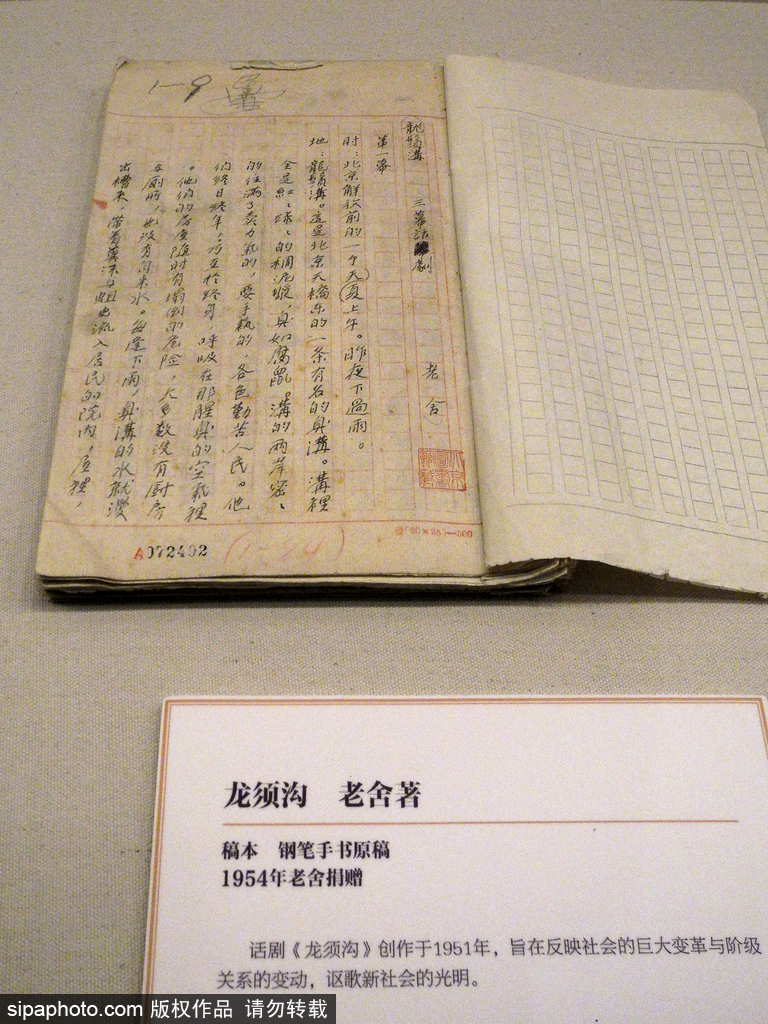 1-9
龍鬚溝 三幕話劇 老舍
第一幕
时：北京解放前的一个夏天上午。昨夜下過雨。
地：龍鬚溝。這是北京天橋东的一条有名的臭溝。溝裡
全是紅、绿、的稠泥漿，臭如腐鼠。溝的兩岸密、
的住滿了卖力氣的，耍手執的，各色勤苦人民。他
们終日終年，乃至於終身，呼吸在那腥臭的空氣裡
。他们的房屋随时有塌倒的危险，大多数沒有厨房
与厠所，也沒有自来水。每逢下雨，臭溝的水就漫
出槽来，带着糞沫与蛆出流入居民的院内，屋裡，
A072402
(1-84)
(20×25)=500
龙须沟 老舍著
稿本 钢笔手书原稿
1954年老舍捐赠
话剧《龙须沟》创作于1951年，旨在反映社会的巨大变革与阶级
关系的变动，讴歌新社会的光明。
sipaphoto.com 版权作品 请勿转载